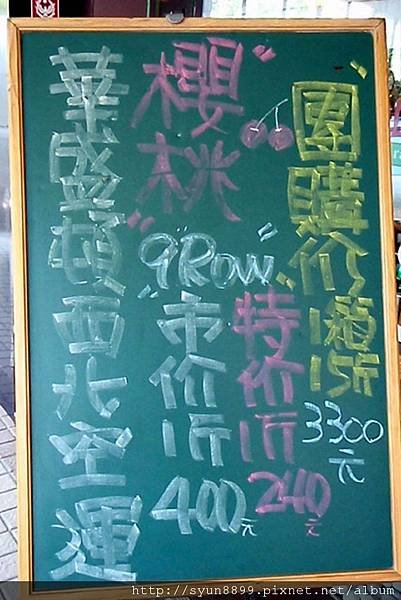 團購价1箱15斤
3300元
櫻桃
"9Row"
特价1斤
240元
市价1斤
400元
華盛頓西北空運
http://syun8899.pixnet.net/album